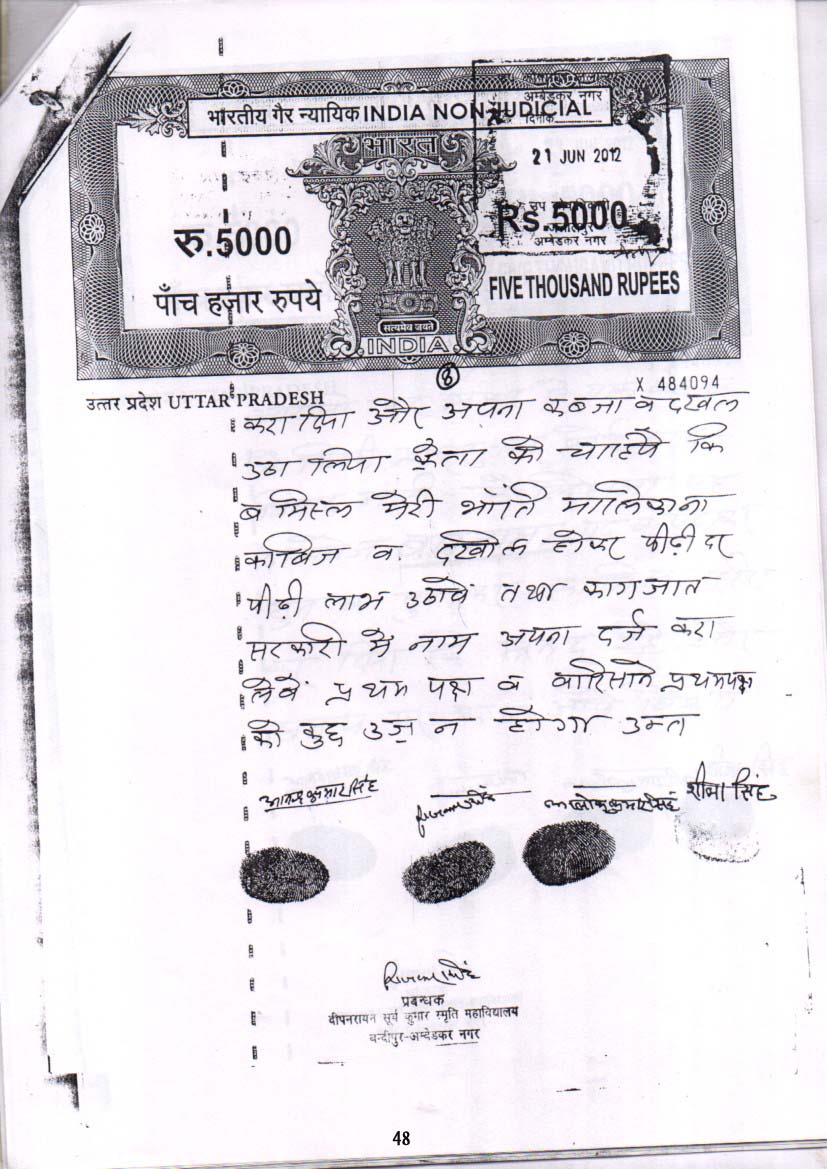 भारतीय गैर न्यायिक INDIA NON JUDICIAL
अम्बेडकर नगर
दिनांक
भारत
21 JUN 2012
रु.5000
Rs.5000
अम्बेडकर नगर
पाँच हज़ार रुपये
FIVE THOUSAND RUPEES
सत्यमेव जयते
INDIA
8
X 484094
उत्तर प्रदेश UTTAR PRADESH
करा दिया और अपना कब्जा व दखल
उठा लिया क्रेता को चाहिये कि
ब मिस्ल मेरी भाँति मालिकाना
काबिज व दखील होकर पीढ़ी दर
पीढ़ी लाभ उठावें तथा कागजात
सरकारी में नाम अपना दर्ज करा
लेवें प्रथम पक्ष व वारिसाने प्रथमपक्ष
को कुछ उज्र न होगा उक्त
कुमार सिंह
आलोक कुमार सिंह
सिंह
प्रबन्धक
दीपनरायन सूर्य कुमार स्मृति महाविद्यालय
बन्दीपुर-अम्बेडकर नगर
48